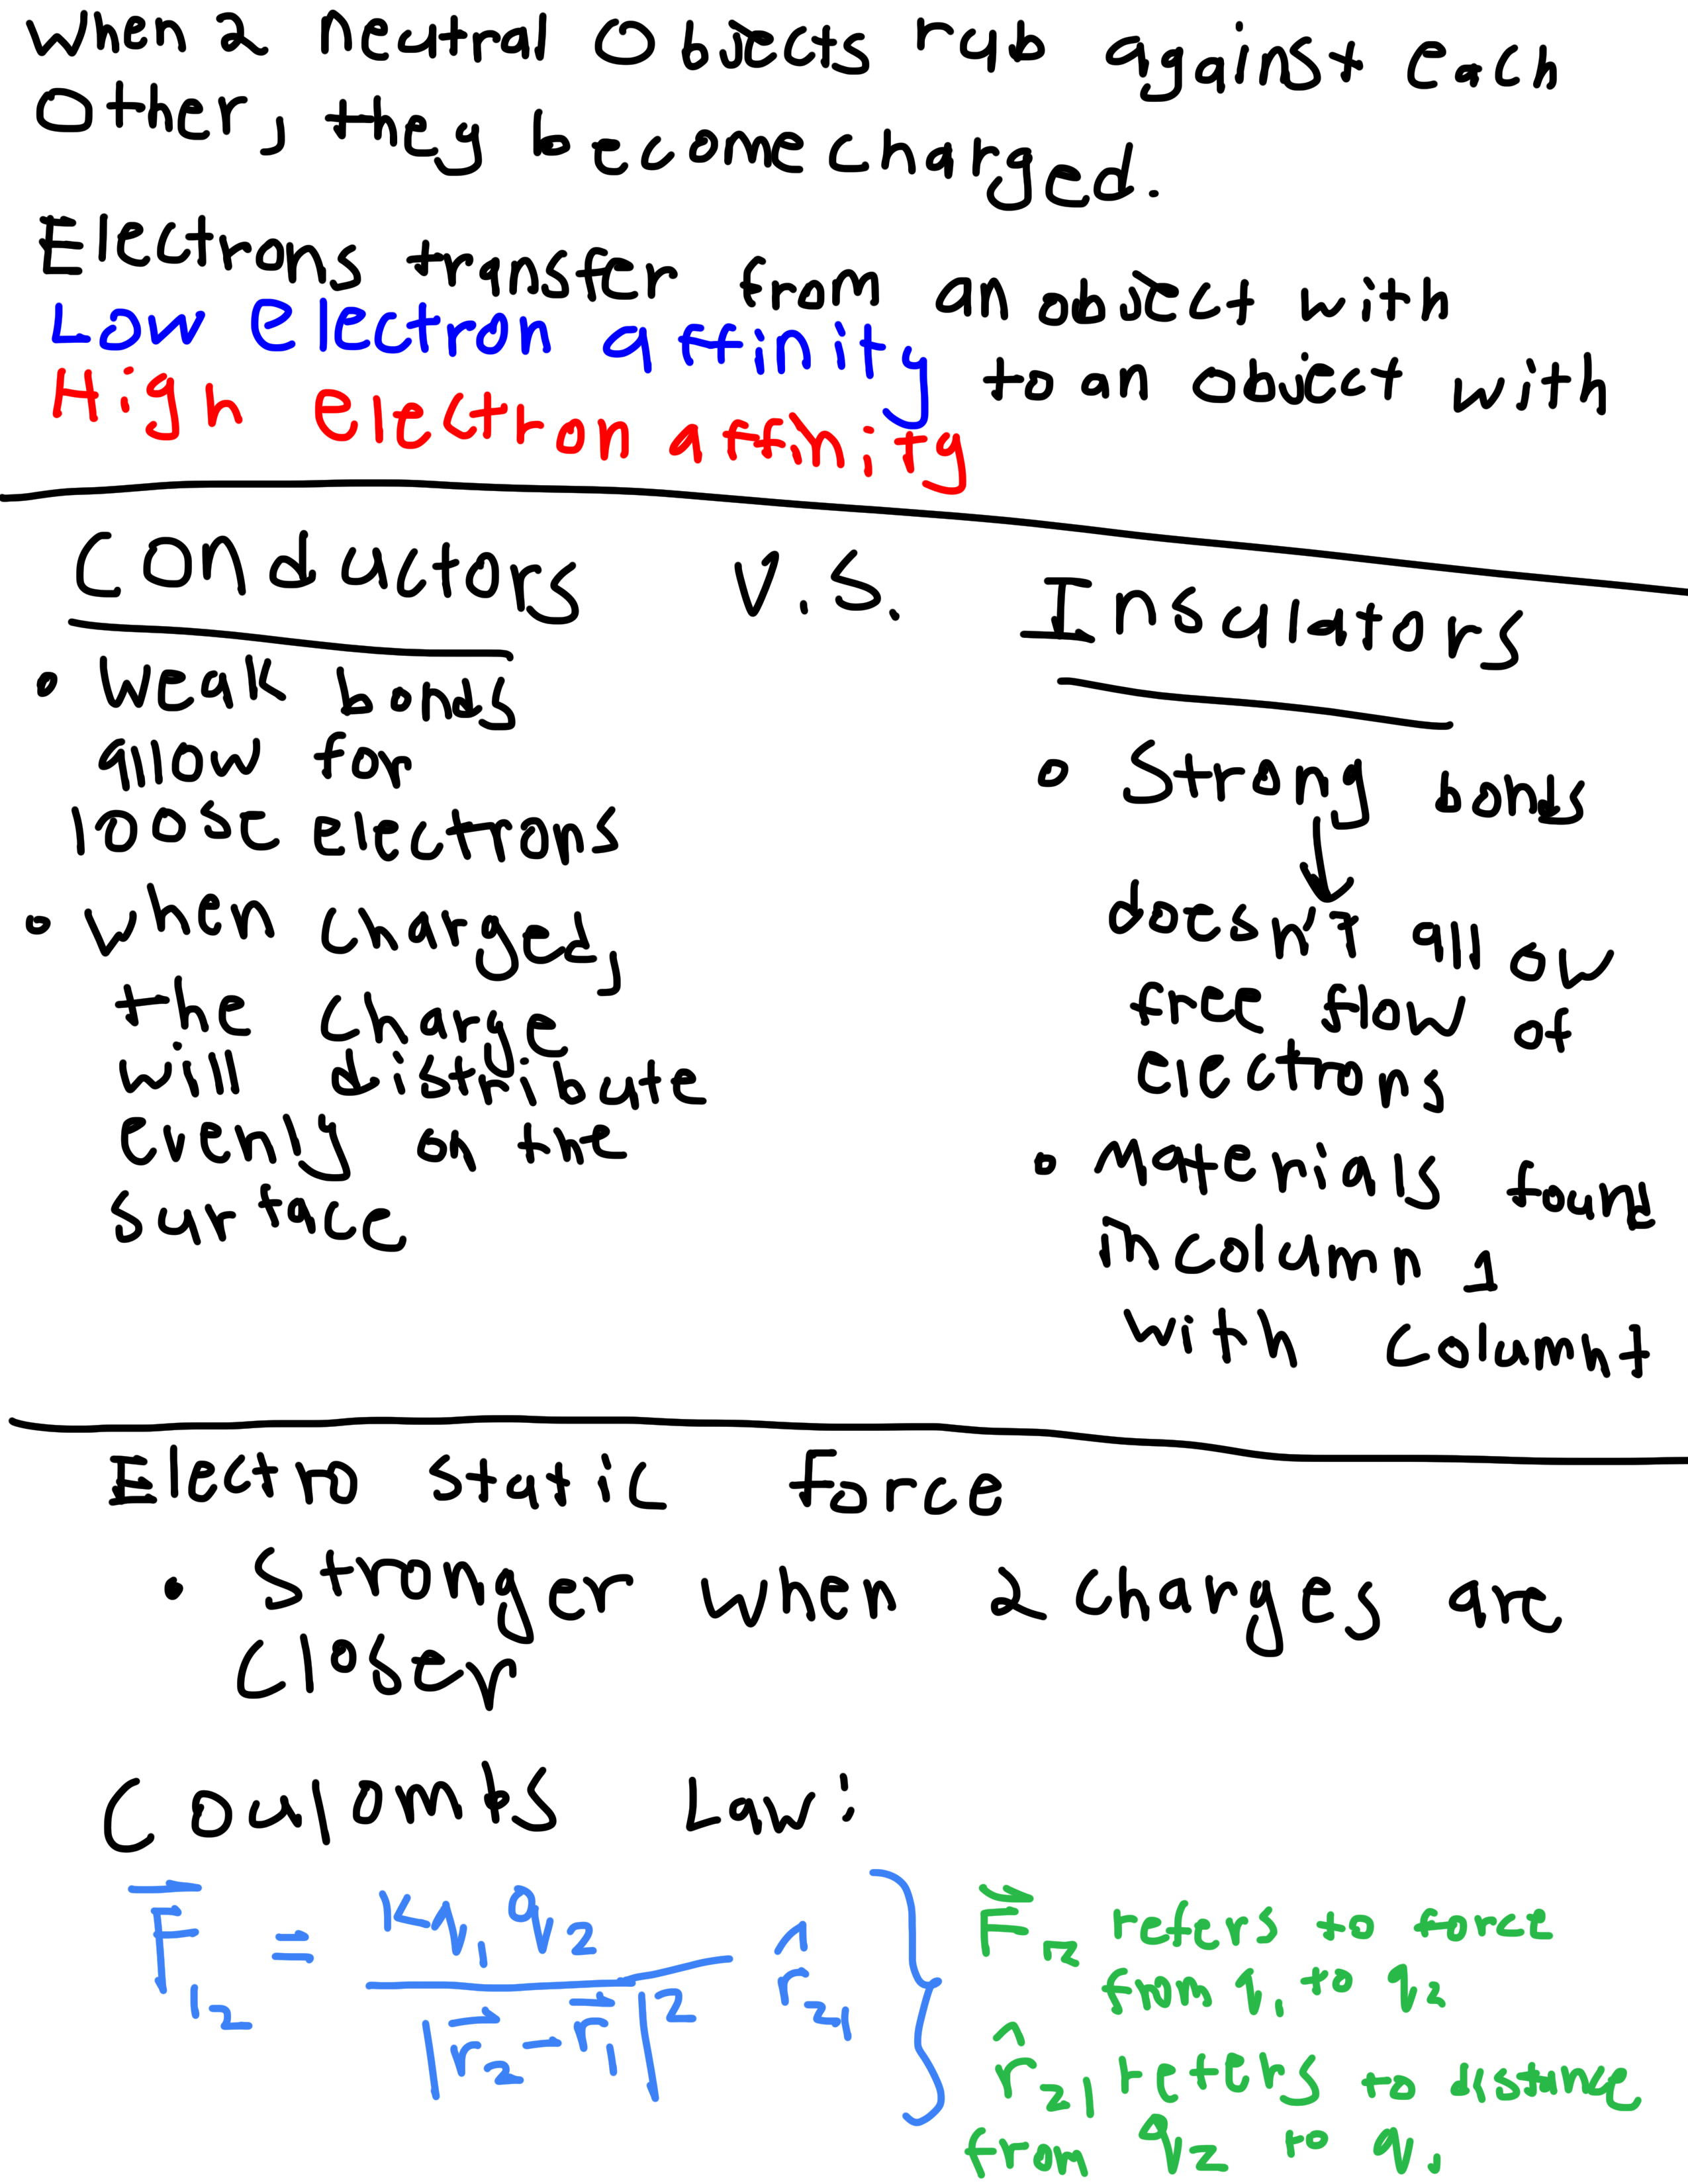 when 2 neutral objects rub against each
other, they become charged.
Electrons transfer from an object with
Low electron affinity to an object with
High electron affinity
Conductors V.S. Insulators
• Weak bonds
allow for
loose electrons
• when charged,
the charge
will distribute
evenly on the
surface
• Strong bonds
↓
doesn't allow
free flow of
electrons
• Materials found
in column 1
with column 7
Electro static force
• Stronger when 2 charges are
closer
Coulombs Law:
F⃗₁₂ = kq₁q₂ / |r⃗₂ - r⃗₁|² r̂₂₁
F⃗₁₂ refers to force
from q₁ to q₂
r̂₂₁ refers to distance
from q₂ to q₁